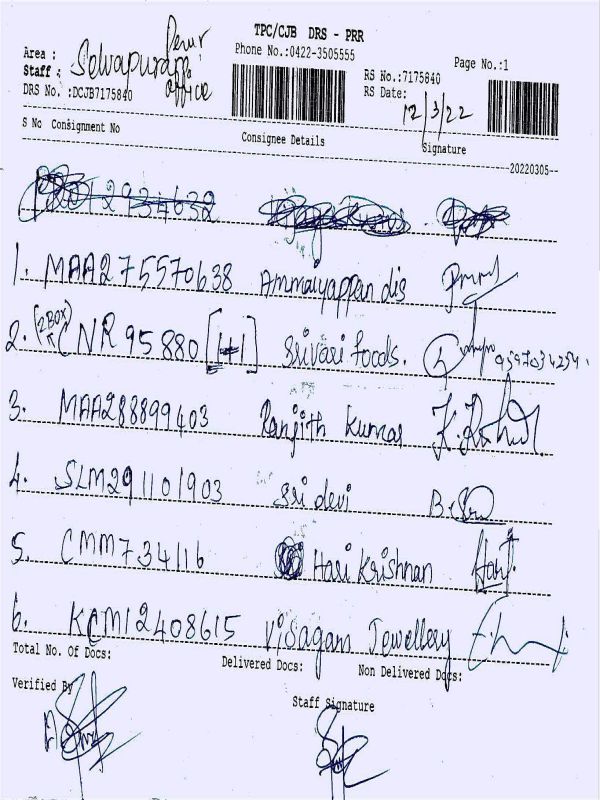 TPC/CJB DRS - PRR
Phone No.:0422-3505555
Page No.:1
Area : Selvapuram Perur office
Staff :
DRS No. :DCJB7175840
RS No.:7175840
RS Date: 12/3/22
S No Consignment No Consignee Details Signature
20220305
1. MAA275570638 Ammaiyappan dis
2. (2BOX) CNR 95880 [1+1] Srivari foods. 9597034254
3. MAA288899403 Ranjith Kumar
4. SLM291101903 Sri devi
5. CMM734116 Hari Krishnan
6. KCM12408615 Visagam Jewellery
Total No. Of Docs: Delivered Docs: Non Delivered Docs:
Verified By
Staff Signature